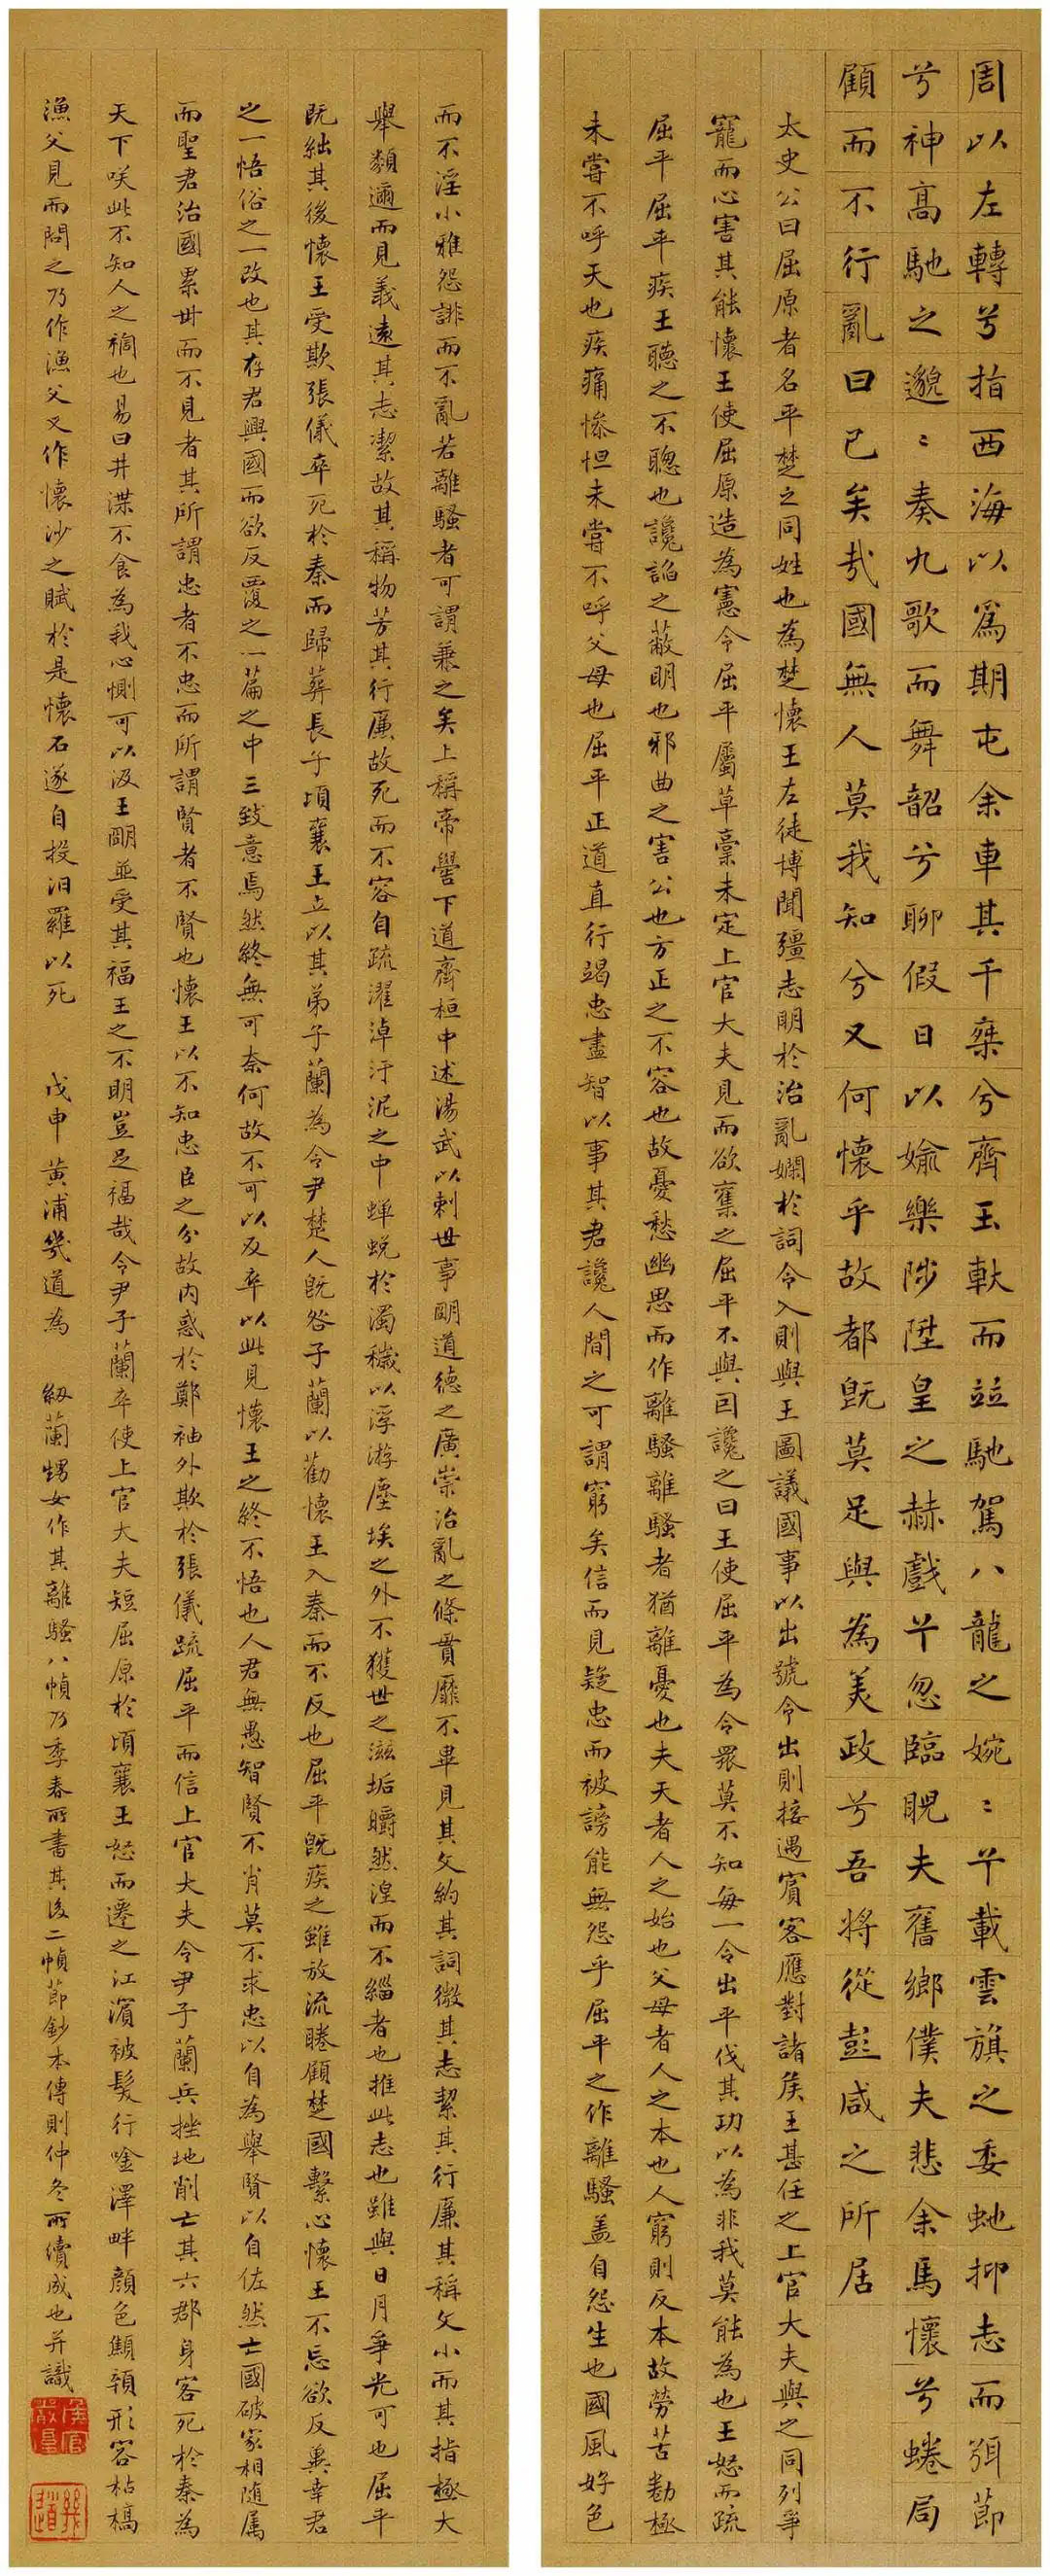 周以左轉兮指西海以爲期屯余車其千椉兮齊玉軑而竝馳駕八龍之婉〻兮載雲旗之委虵抑志而弭節
兮神高馳之邈〻奏九歌而舞韶兮聊假日以婾樂陟陞皇之赫戲兮忽臨睨夫舊鄉僕夫悲余馬懷兮蜷局
顧而不行亂曰已矣哉國無人莫我知兮又何懷乎故都既莫足與為美政兮吾将從彭咸之所居
太史公曰屈原者名平楚之同姓也為楚懷王左徒博聞彊志明於治亂嫻於詞令入則與王圖議國事以出號令出則接遇賓客應對諸矦王甚任之上官大夫與之同列爭
寵而心害其能懷王使屈原造為憲令屈平屬草稾未定上官大夫見而欲奪之屈平不與因讒之曰王使屈平為令眾莫不知每一令出平伐其功以為非我莫能為也王怒而疏
屈平屈平疾王聽之不聰也讒諂之蔽明也邪曲之害公也方正之不容也故憂愁幽思而作離騷離騷者猶離憂也夫天者人之始也父母者人之本也人窮則反本故勞苦勌極
未嘗不呼天也疾痛慘怛未嘗不呼父母也屈平正道直行竭忠盡智以事其君讒人間之可謂窮矣信而見疑忠而被謗能無怨乎屈平之作離騷盖自怨生也國風好色
而不淫小雅怨誹而不亂若離騷者可謂兼之矣上稱帝嚳下道齊桓中述湯武以刺世事明道德之廣崇治亂之條貫靡不畢見其文約其詞微其志絜其行廉其稱文小而其指極大
舉類邇而見義遠其志潔故其稱物芳其行廉故死而不容自疏濯淖汙泥之中蟬蛻於濁穢以浮游塵埃之外不獲世之滋垢皭然涅而不緇者也推此志也雖與日月爭光可也屈平
既絀其後懷王受欺張儀卒死於秦而歸葬長子頃襄王立以其弟子蘭為令尹楚人既咎子蘭以勸懷王入秦而不反也屈平既疾之雖放流睠顧楚國繫心懷王不忘欲反兾幸君
之一悟俗之一改也其存君興國而欲反覆之一篇之中三致意焉然終無可奈何故不可以反卒以此見懷王之終不悟也人君無愚智賢不肖莫不求忠以自為舉賢以自佐然亡國破家相随属
而聖君治國累世而不見者其所謂忠者不忠而所謂賢者不賢也懷王以不知忠臣之分故内惑於鄭袖外欺於張儀疏屈平而信上官大夫令尹子蘭兵挫地削亡其六郡身客死於秦為
天下咲此不知人之禍也易曰井渫不食為我心惻可以汲王明並受其福王之不明豈足福哉令尹子蘭卒使上官大夫短屈原於頃襄王怒而遷之江濱被髮行唫澤畔顔色顦顇形容枯槁
漁父見而問之乃作漁父又作懷沙之賦於是懷石遂自投汨羅以死 戊申 黄浦幾道為 紉蘭甥女作其離騷八幀乃季春所書其後二幀節鈔本傳則仲冬所續成也并識
矦官嚴復
幾道